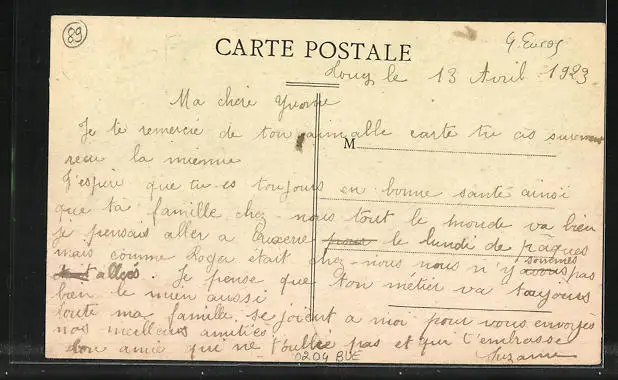 89
CARTE POSTALE
le 13 Avril 1923
Ma chère Yvonne
Je te remercie de ton aimable carte tu as surement
M
recu la mienne
J'espère que tu es toujours en bonne santé ainsi
que ta famille chez nous tout le monde va bien
je pensais aller a Auxerre pour le lundi de pâques
mais comme Roger etait chez-nous nous n'y avons sommes pas
allées. Je pense que ton métier va toujours
bien le mien aussi
toute ma famille se joient a moi pour vous envoyés
nos meilleurs amitiés
ton amie qui ne t'oublie pas et qui t'embrasse
Suzanne
0204 BUE